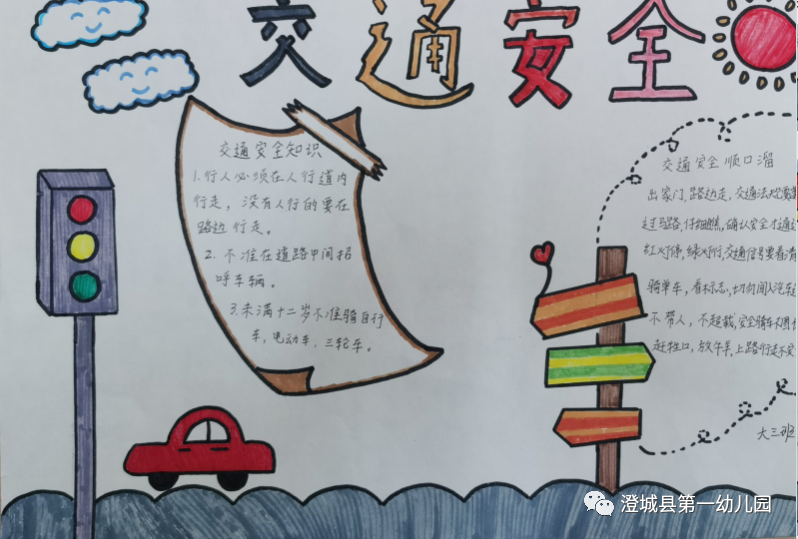 交通安全
交通安全知识
1.行人必须在人行道内
行走，没有人行的要在
路边行走。
2.不准在道路中间招
呼车辆。
3.未满十二岁不准骑自行
车，电动车，三轮车。
交通安全顺口溜
出家门，路边走，交通法规
过马路，仔细瞧，确认安全才通过
红灯停，绿灯行，交通信号要看清
骑单车，看标志，切勿闯入汽车道
不带人，不超载，安全骑车
赶牲口，放牛羊，上路行走不安
大三班
澄城县第一幼儿园